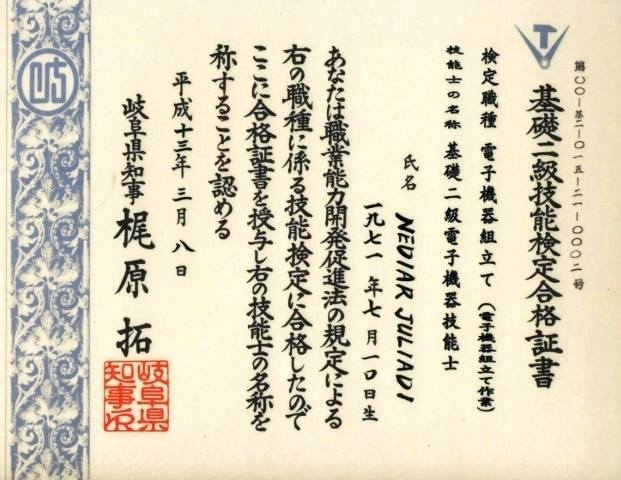 第〇〇-基二-〇一五-二一-〇〇〇二号
基礎二級技能検定合格証書
検定職種 電子機器組立て (電子機器組立て作業)
技能士の名称 基礎二級電子機器技能士
氏名 NEDIAR JULIADI
一九七一年七月一〇日生
あなたは職業能力開発促進法の規定による
右の職種に係る技能検定に合格したので
ここに合格証書を授与し右の技能士の名称を
称することを認める
平成十三年三月八日
岐阜県知事 梶原拓
岐阜県
知事之印